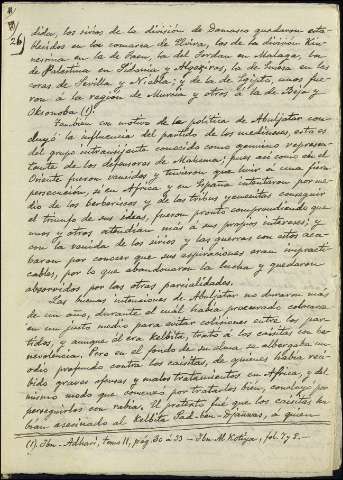 26)
dida, los sirios de la división de Damasco quedaron esta-
blecidos en la comarca de Elvira, los de la división Kin-
nesrina en la de Jaen, la del Jordan en Málaga, la
de Palestina en Sidonia y Algeciras, la de Emesa en las
coras de Sevilla y Niebla; y de la de Egipto, unos fue-
ron á la region de Murcia y otros á la de Beja y
Oksonoba (1).
Tambien con motivo de la política de Abuljatar con-
cluyó la influencia del partido de los medineses, esto es
del grupo intransijente conocido como genuino represen-
tante de los defensores de Mahoma; pues así como en el
Oriente fueron vencidos y tuvieron que huir á una fiera
persecución, si en Africa y en España intentaron por me-
dio de los berberiscos y de las tribus yemenitas conseguir
el triunfo de sus ideas, fueron pronto comprendiendo que
unos y otros atendian más á sus propios intereses; y
con la venida de los sirios y las guerras con estos aca-
baron por conocer que sus aspiraciones eran impracti-
cables, por lo que abandonaron la lucha y quedaron
absorvidos por las otras parcialidades.
Las buenas intenciones de Abuljatar no duraron más
de un año, durante el cual habia procurado colocarse
en un justo medio para evitar colisiones entre los par-
tidos, y aunque él era Kelbita, trató á los caisitas con be-
nevolencia. Pero en el fondo de su alma se albergaba un
odio profundo contra los caisitas, de quienes habia reci-
bido graves ofensas y malos tratamientos en Africa, y del
mismo modo que comenzó por tratarlos bien, concluyó por
perseguirlos con rabia. El pretexto fué que los caisitas ha-
bian asesinado al Kelbita Sad-ben- á quien
(1). Ibn-Adhari, tomo II, pág 30 á 33 - Ibn Al Kotiya, fol. 7 y 8.